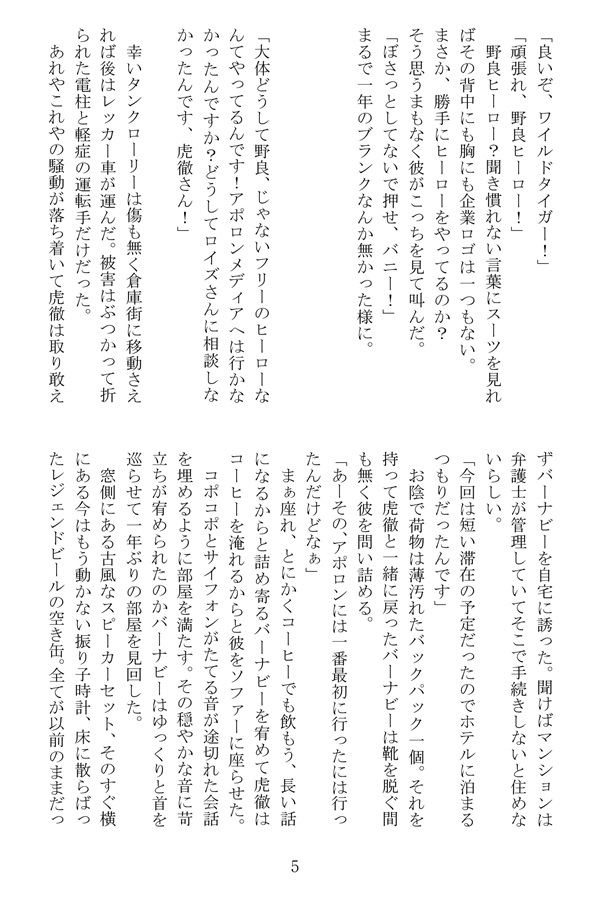 「良いぞ、ワイルドタイガー！」
「頑張れ、野良ヒーロー！」
　野良ヒーロー？聞き慣れない言葉にスーツを見れ
ばその背中にも胸にも企業ロゴは一つもない。
まさか、勝手にヒーローをやってるのか？
そう思うまもなく彼がこっちを見て叫んだ。
「ぼさっとしてないで押せ、バニー！」
まるで一年のブランクなんか無かった様に。
「大体どうして野良、じゃないフリーのヒーローな
んてやってるんです！アポロンメディアへは行かな
かったんですか？どうしてロイズさんに相談しな
かったんです、虎徹さん！」
　幸いタンクローリーは傷も無く倉庫街に移動さえ
れば後はレッカー車が運んだ。被害はぶつかって折
られた電柱と軽症の運転手だけだった。
　あれやこれやの騒動が落ち着いて虎徹は取り敢え
ずバーナビーを自宅に誘った。聞けばマンションは
弁護士が管理していてそこで手続きしないと住めな
いらしい。
「今回は短い滞在の予定だったのでホテルに泊まる
つもりだったんです」
　お陰で荷物は薄汚れたバックパック一個。それを
持って虎徹と一緒に戻ったバーナビーは靴を脱ぐ間
も無く彼を問い詰める。
「あーその、アポロンには一番最初に行ったには行っ
たんだけどなぁ」
　まぁ座れ、とにかくコーヒーでも飲もう、長い話
になるからと詰め寄るバーナビーを宥めて虎徹は
コーヒーを淹れるからと彼をソファーに座らせた。
　コポコポとサイフォンがたてる音が途切れた会話
を埋めるように部屋を満たす。その穏やかな音に苛
立ちが宥められたのかバーナビーはゆっくりと首を
巡らせて一年ぶりの部屋を見回した。
　窓側にある古風なスピーカーセット、そのすぐ横
にある今はもう動かない振り子時計、床に散らばっ
たレジェンドビールの空き缶。全てが以前のままだっ
5